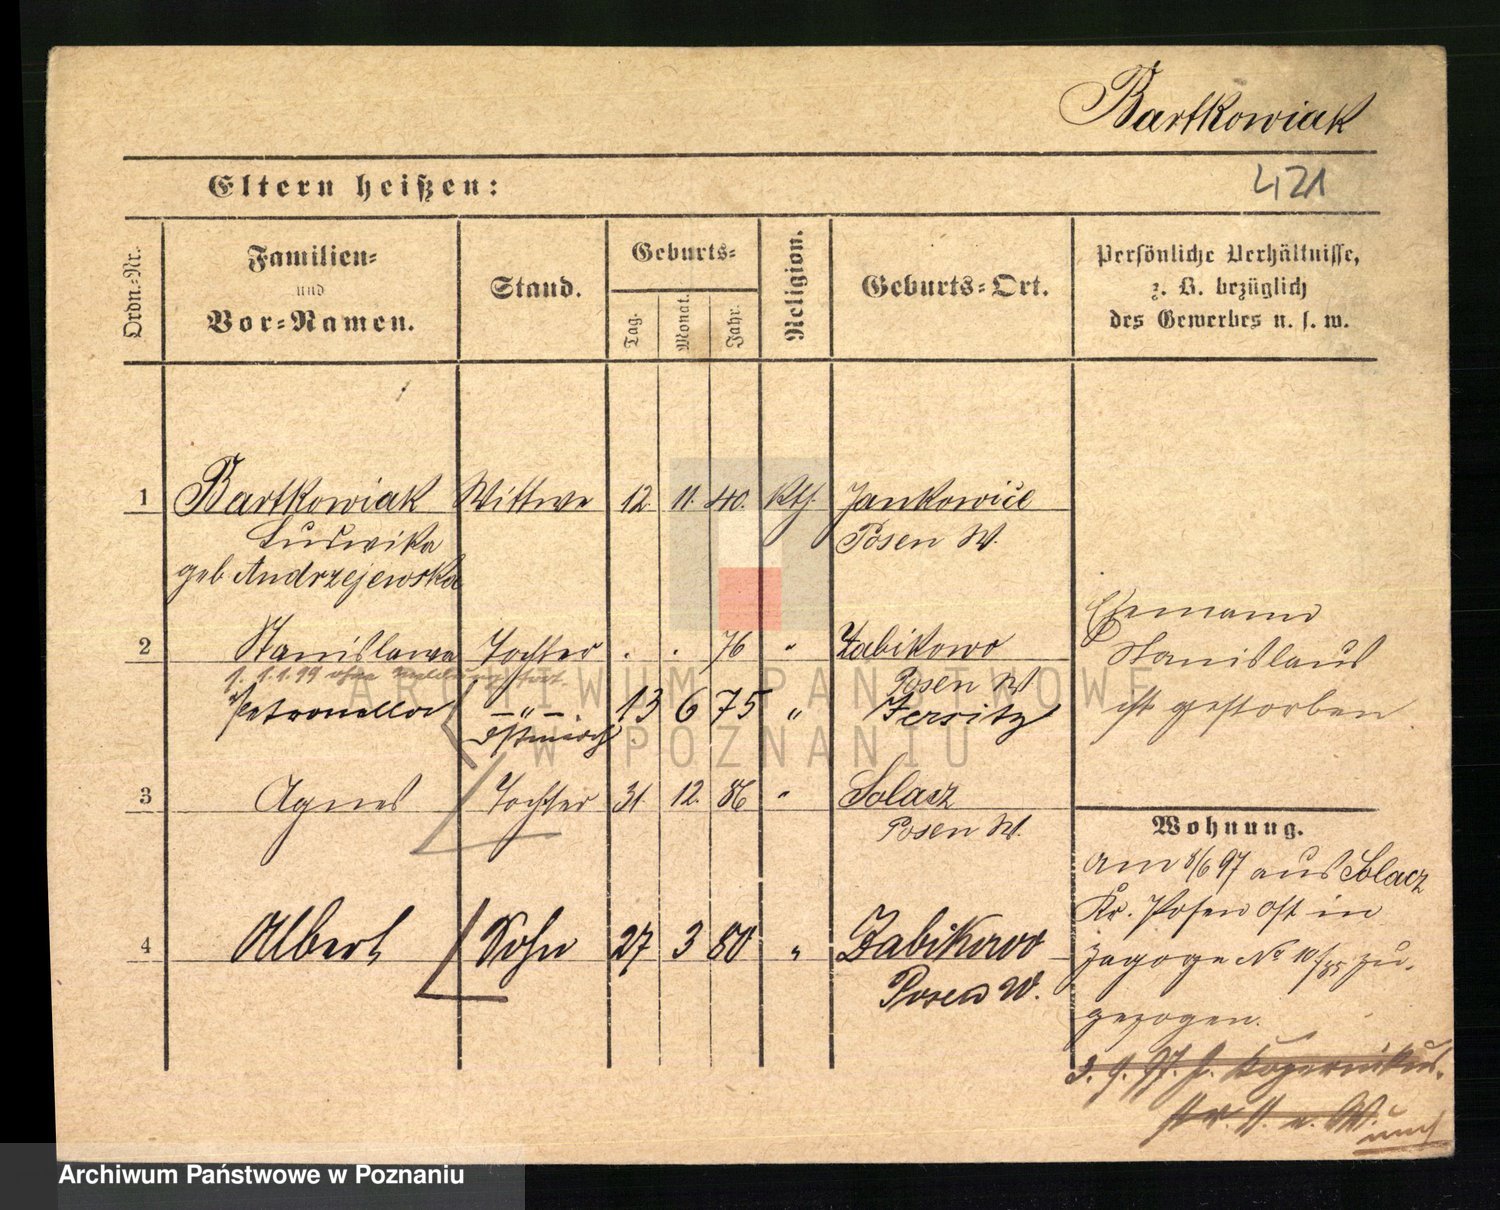 Bartkowiak
421
Eltern heißen:
Ordn.-Nr.
Familien-
und
Vor-Namen.
Stand.
Geburts-
Tag.
Monat.
Jahr.
Religion.
Geburts-Ort.
Persönliche Verhältnisse,
z. B. bezüglich
des Gewerbes u. s. w.
1 Bartkowiak Wittwe 12. 11. 40. Kth. Jankowice
Ludwika Posen W.
geb Andrzejewska
2 Stanislawa Tochter . . 76 " Zabikowo
1.1.99 ohne Meldung fort. Posen W
Petronella — " — 13 6 75 " Jersitz
3 Agnes Tochter 31. 12. 86 " Solacz
Posen W.
4 Albert Sohn 27 3 80 " Zabikowo
Posen W.
Ehemann
Stanislaus
ist gestorben.
Wohnung.
Am 8/6 97 aus Solacz
Kr. Posen Ost in
Zagoze No 10/785 zu-
gezogen.
3. 9. 97.
ARCHIWUM PAŃSTWOWE
W POZNANIU
Archiwum Państwowe w Poznaniu